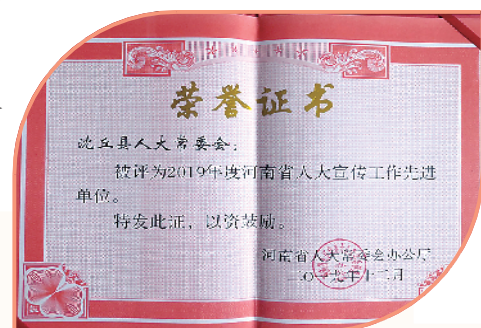 荣誉证书
沈丘县人大常委会：
被评为2019年度河南省人大宣传工作先进
单位。
特发此证，以资鼓励。
河南省人大常委会办公厅
二〇一九年十二月